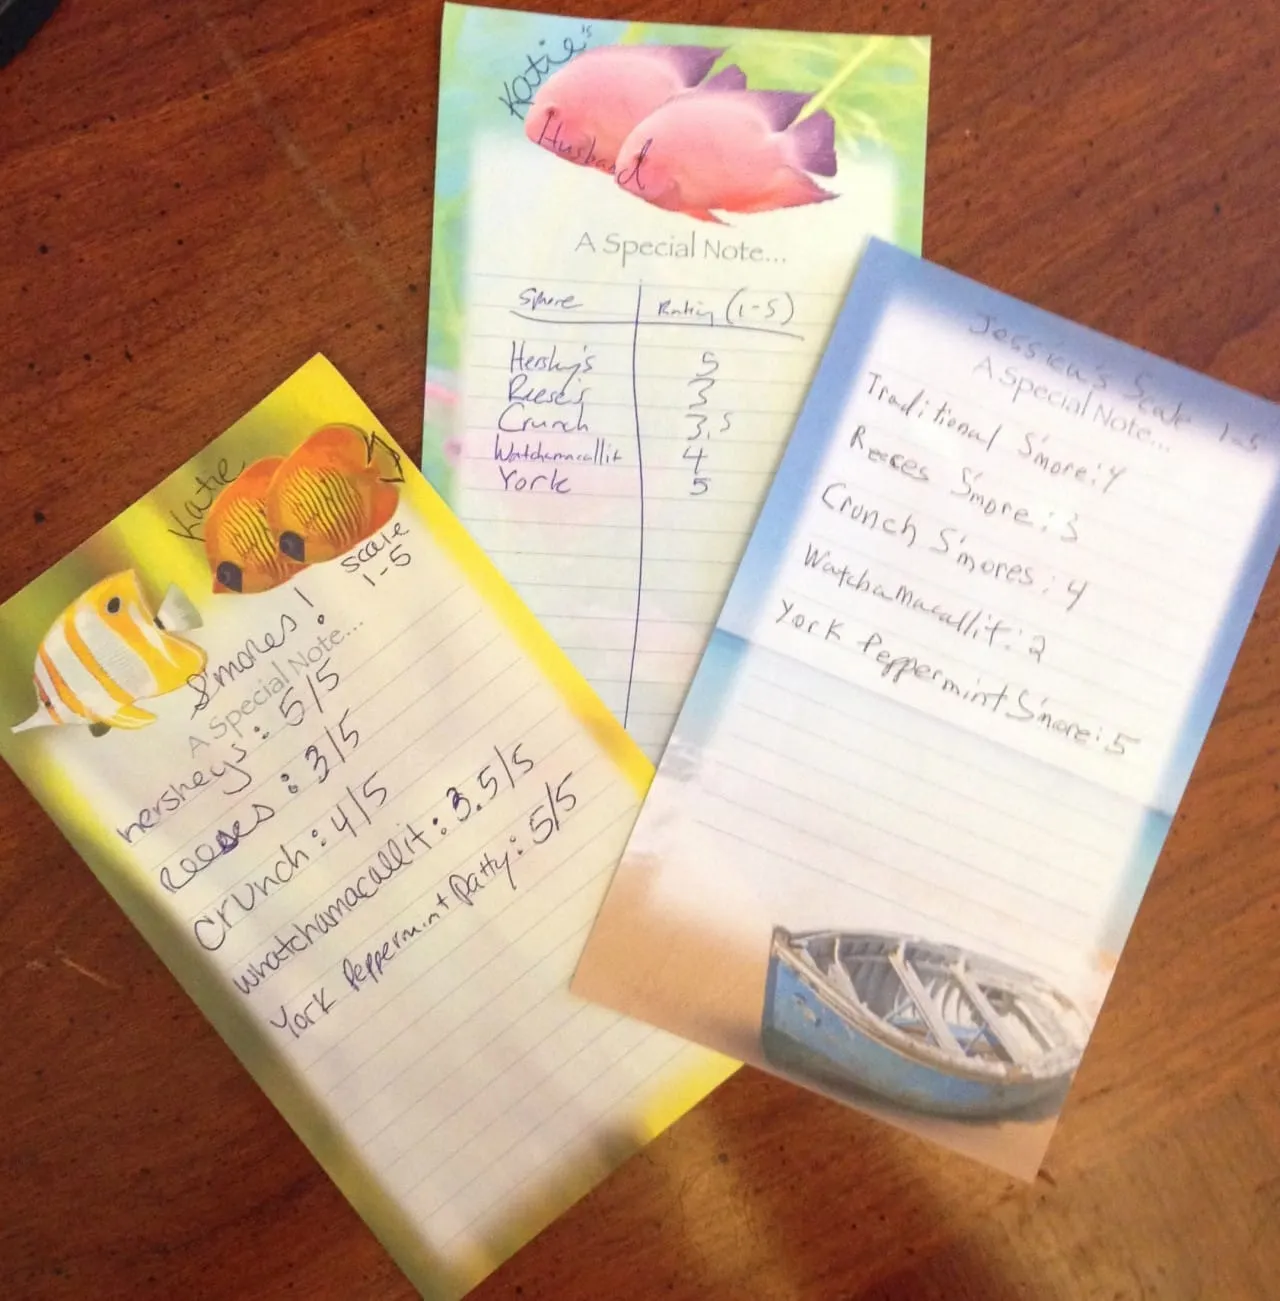 Katie
scale
1-5
S'mores!
A Special Note...
hersheys: 5/5
reeses: 3/5
Crunch: 4/5
whatchamacallit: 3.5/5
York Peppermint Patty: 5/5
Katie's
Husband
A Special Note...
Smore Rating (1-5)
Hershy's 5
Reese's 3
Crunch 3.5
Watchamacallit 4
York 5
Jessica's Scale 1-5
A Special Note...
Traditional S'more: 4
Reeces S'more: 3
Crunch S'mores: 4
Watchamacallit: 2
York Peppermint S'more: 5